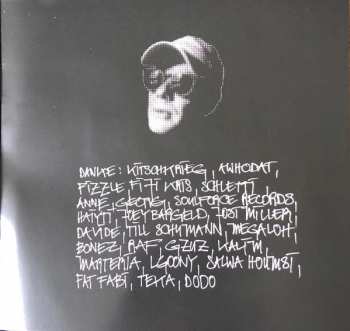 DANKE: KITSCHKRIEG, AWHODAT,
FIZZLE, FIJI KRIS, SCHLETTI,
ANNE, GEORG, SOULFORCE RECORDS,
HAIYTI, JOEY BARGELD, JOSI MILLER,
DAVIDE, TILL SCHUMANN, MEGALOH,
BONEZ, RAF, GZUZ, KALIM,
MARTERIA, LGOONY, SALWA HOUMSI,
FAT FABI, TEXTA, DODO